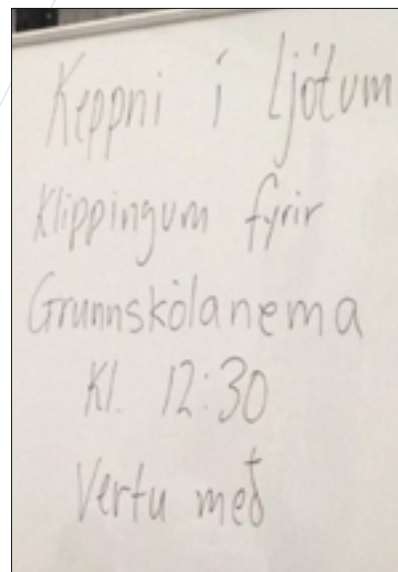 Keppni í Ljótum
Klippingum fyrir
Grunnskólanema
Kl. 12:30
Vertu með